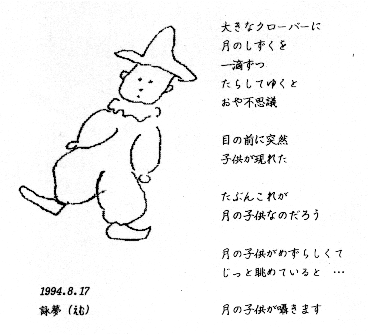 大きなクローバーに
月のしずくを
一滴ずつ
たらしてゆくと
おや不思議
目の前に突然
子供が現れた
たぶんこれが
月の子供なのだろう
月の子供がめずらしくて
じっと眺めていると …
月の子供が囁きます
1994.8.17
詠夢（えむ）